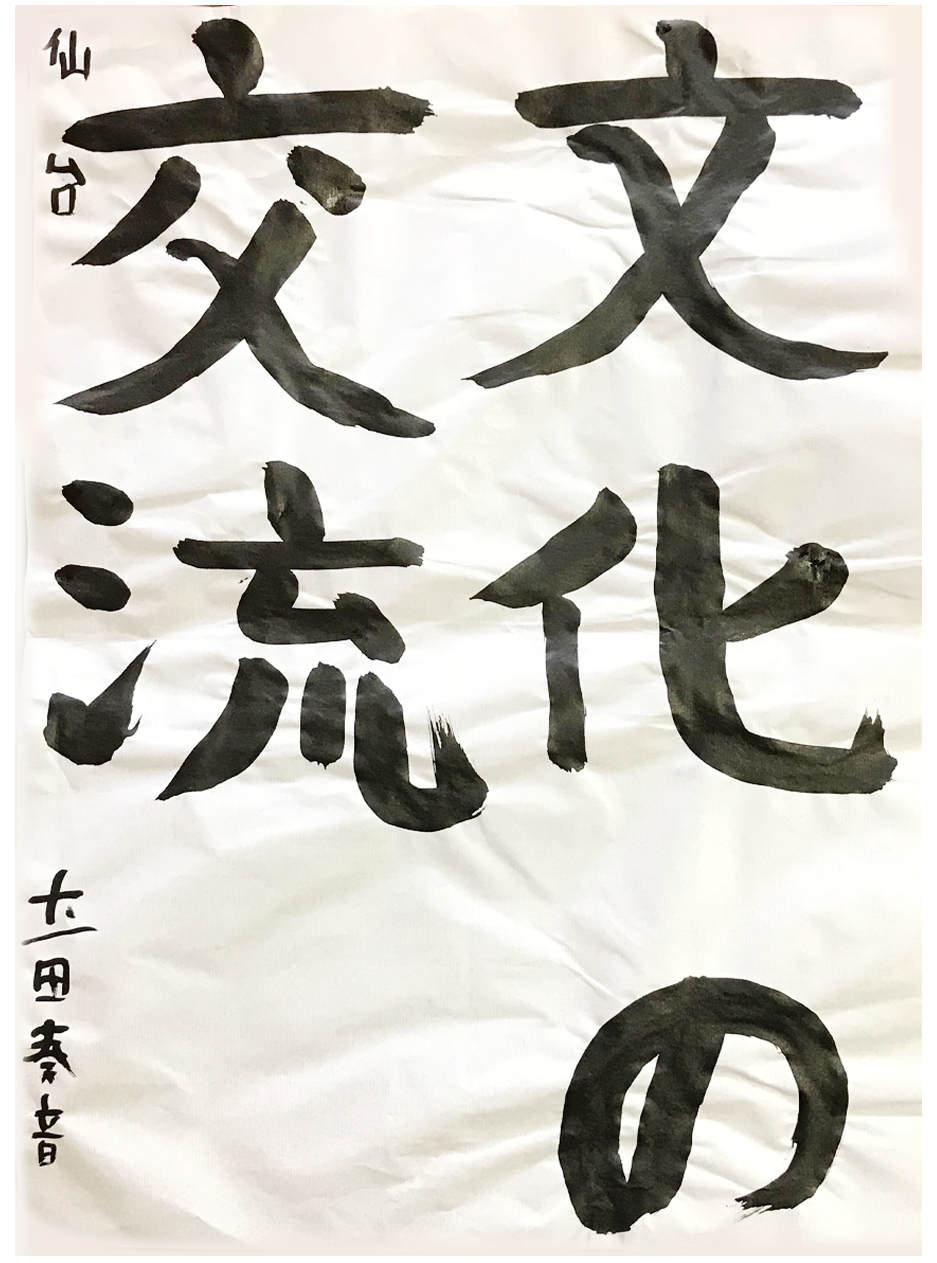 文化の
交流
仙台 圡田奏音